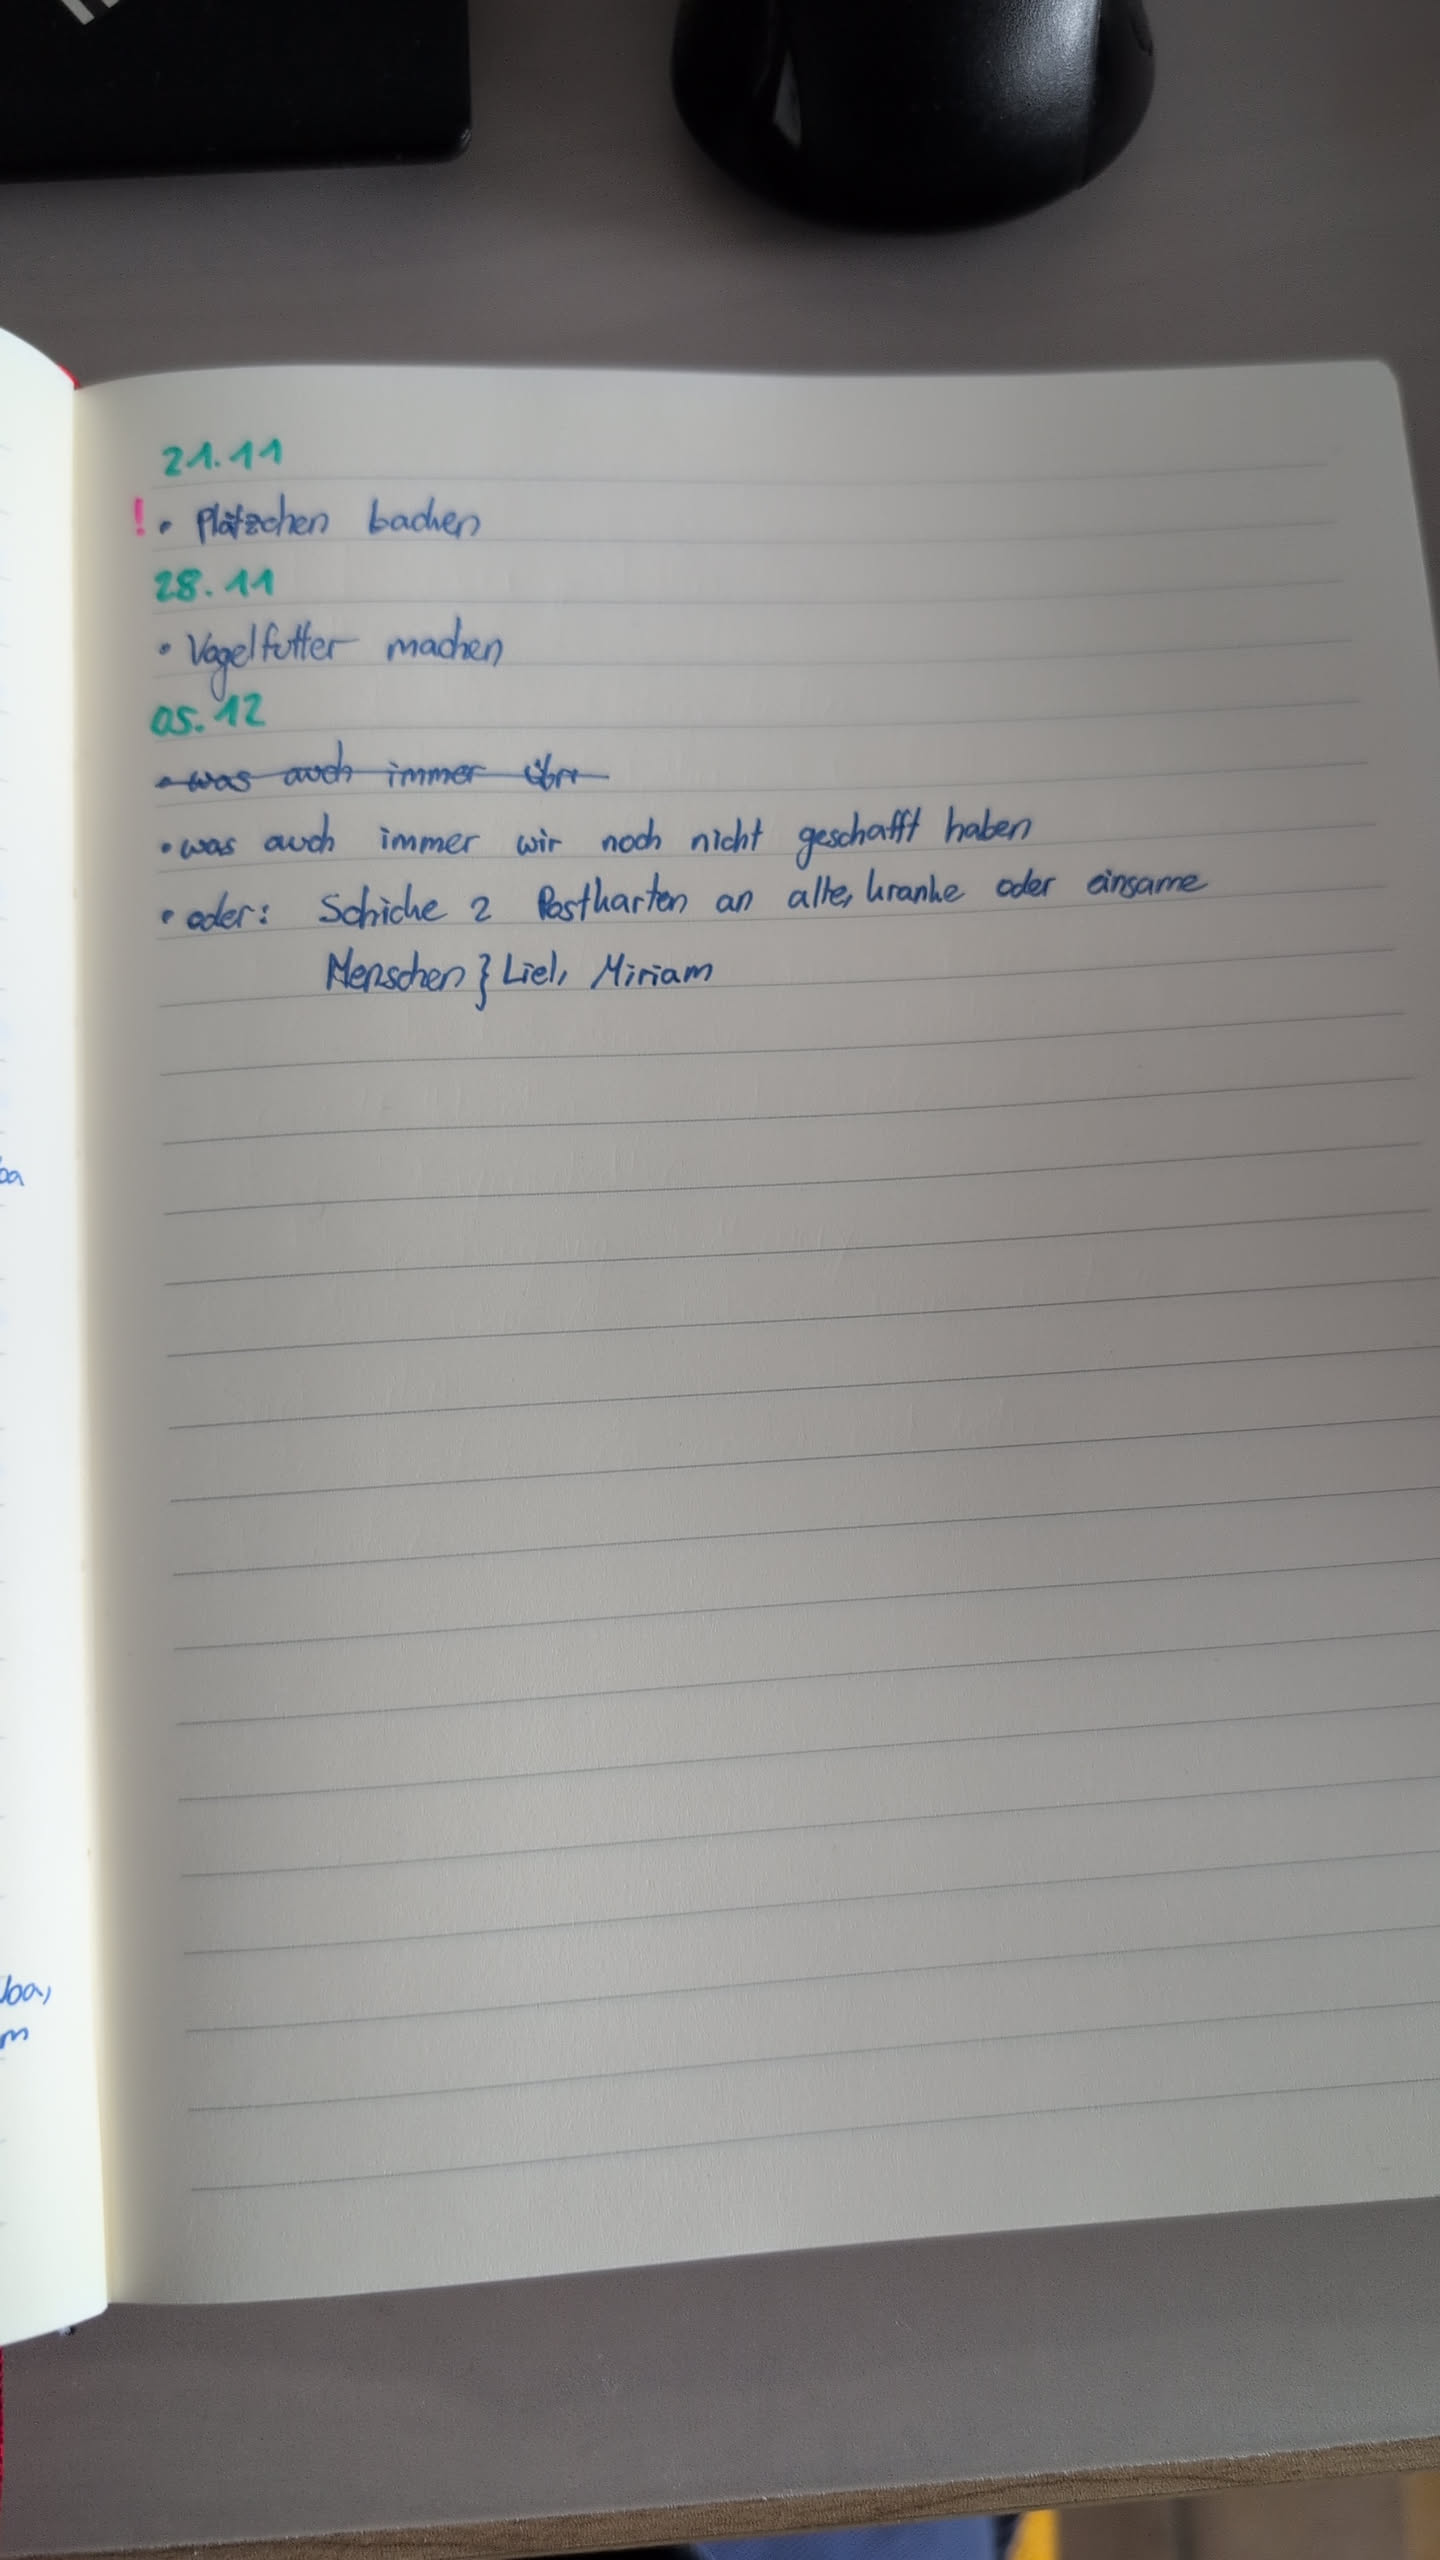 21.11
! • Plätzchen backen
28.11
• Vogelfutter machen
05.12
• was auch immer übri
• was auch immer wir noch nicht geschafft haben
• oder: Schicke 2 Postkarten an alte, kranke oder einsame
Menschen } Liel, Miriam